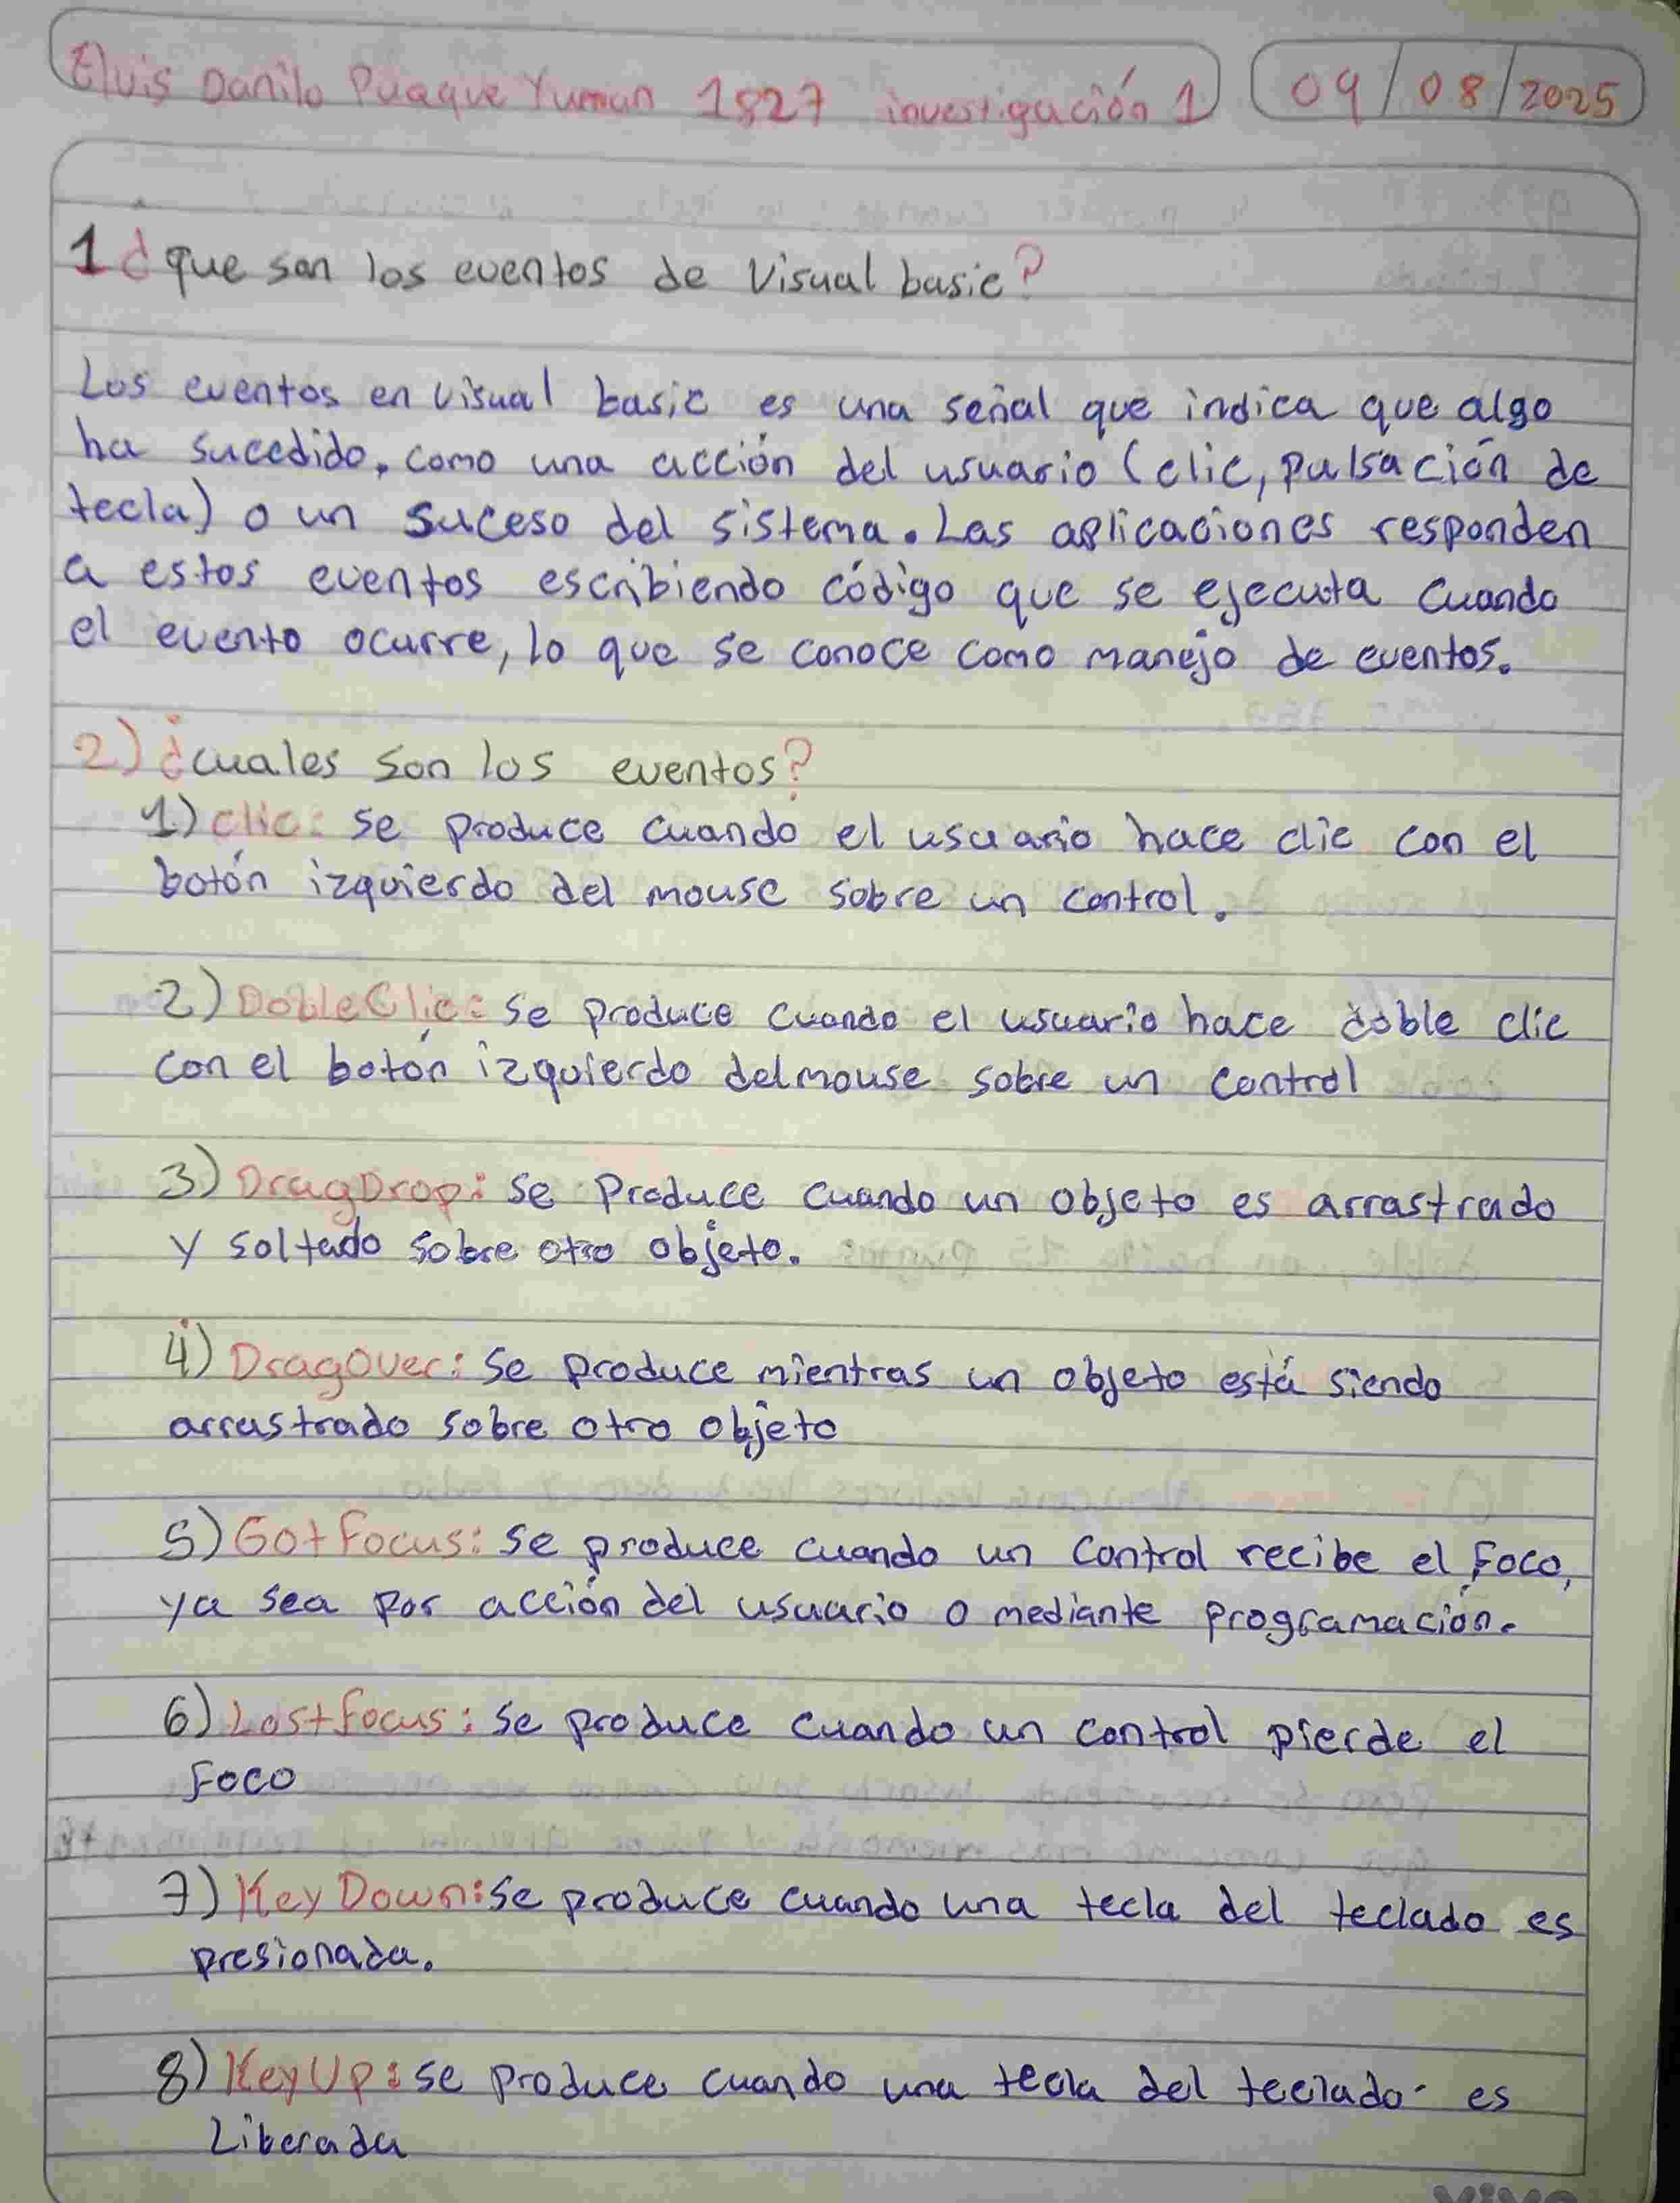 Elvis Danilo Puaque Yuman 1827 investigación 1 09/08/2025
1 ¿que son los eventos de Visual basic?
Los eventos en visual basic es una señal que indica que algo
ha sucedido, como una acción del usuario (clic, pulsación de
tecla) o un suceso del sistema. Las aplicaciones responden
a estos eventos escribiendo código que se ejecuta cuando
el evento ocurre, lo que se conoce como manejo de eventos.
2) ¿cuales son los eventos?
1) clic: se produce cuando el usuario hace clic con el
botón izquierdo del mouse sobre un control.
2) DobleClic: se produce cuando el usuario hace doble clic
con el botón izquierdo delmouse sobre un control
3) DragDrop: se produce cuando un objeto es arrastrado
y soltado sobre otro objeto.
4) DragOver: se produce mientras un objeto está siendo
arrastrado sobre otro objeto
5) Got Focus: se produce cuando un control recibe el Foco,
ya sea por acción del usuario o mediante programación.
6) Lostfocus: se produce cuando un control pierde el
Foco
7) Key Down: se produce cuando una tecla del teclado es
presionada.
8) KeyUp: se produce cuando una tecla del teclado es
Liberada